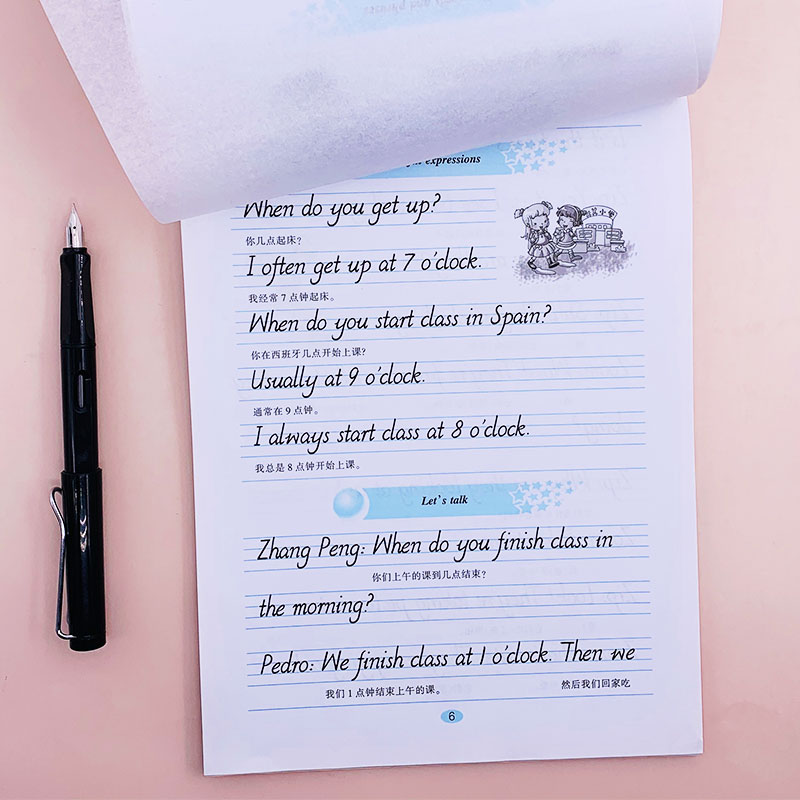 expressions
When do you get up?
你几点起床?
I often get up at 7 o'clock.
我经常 7 点钟起床。
When do you start class in Spain?
你在西班牙几点开始上课?
Usually at 9 o'clock.
通常在 9 点钟。
I always start class at 8 o'clock.
我总是 8 点钟开始上课。
Let's talk
Zhang Peng: When do you finish class in
你们上午的课到几点结束?
the morning?
Pedro: We finish class at 1 o'clock. Then we
我们 1 点钟结束上午的课。 然后我们回家吃
6